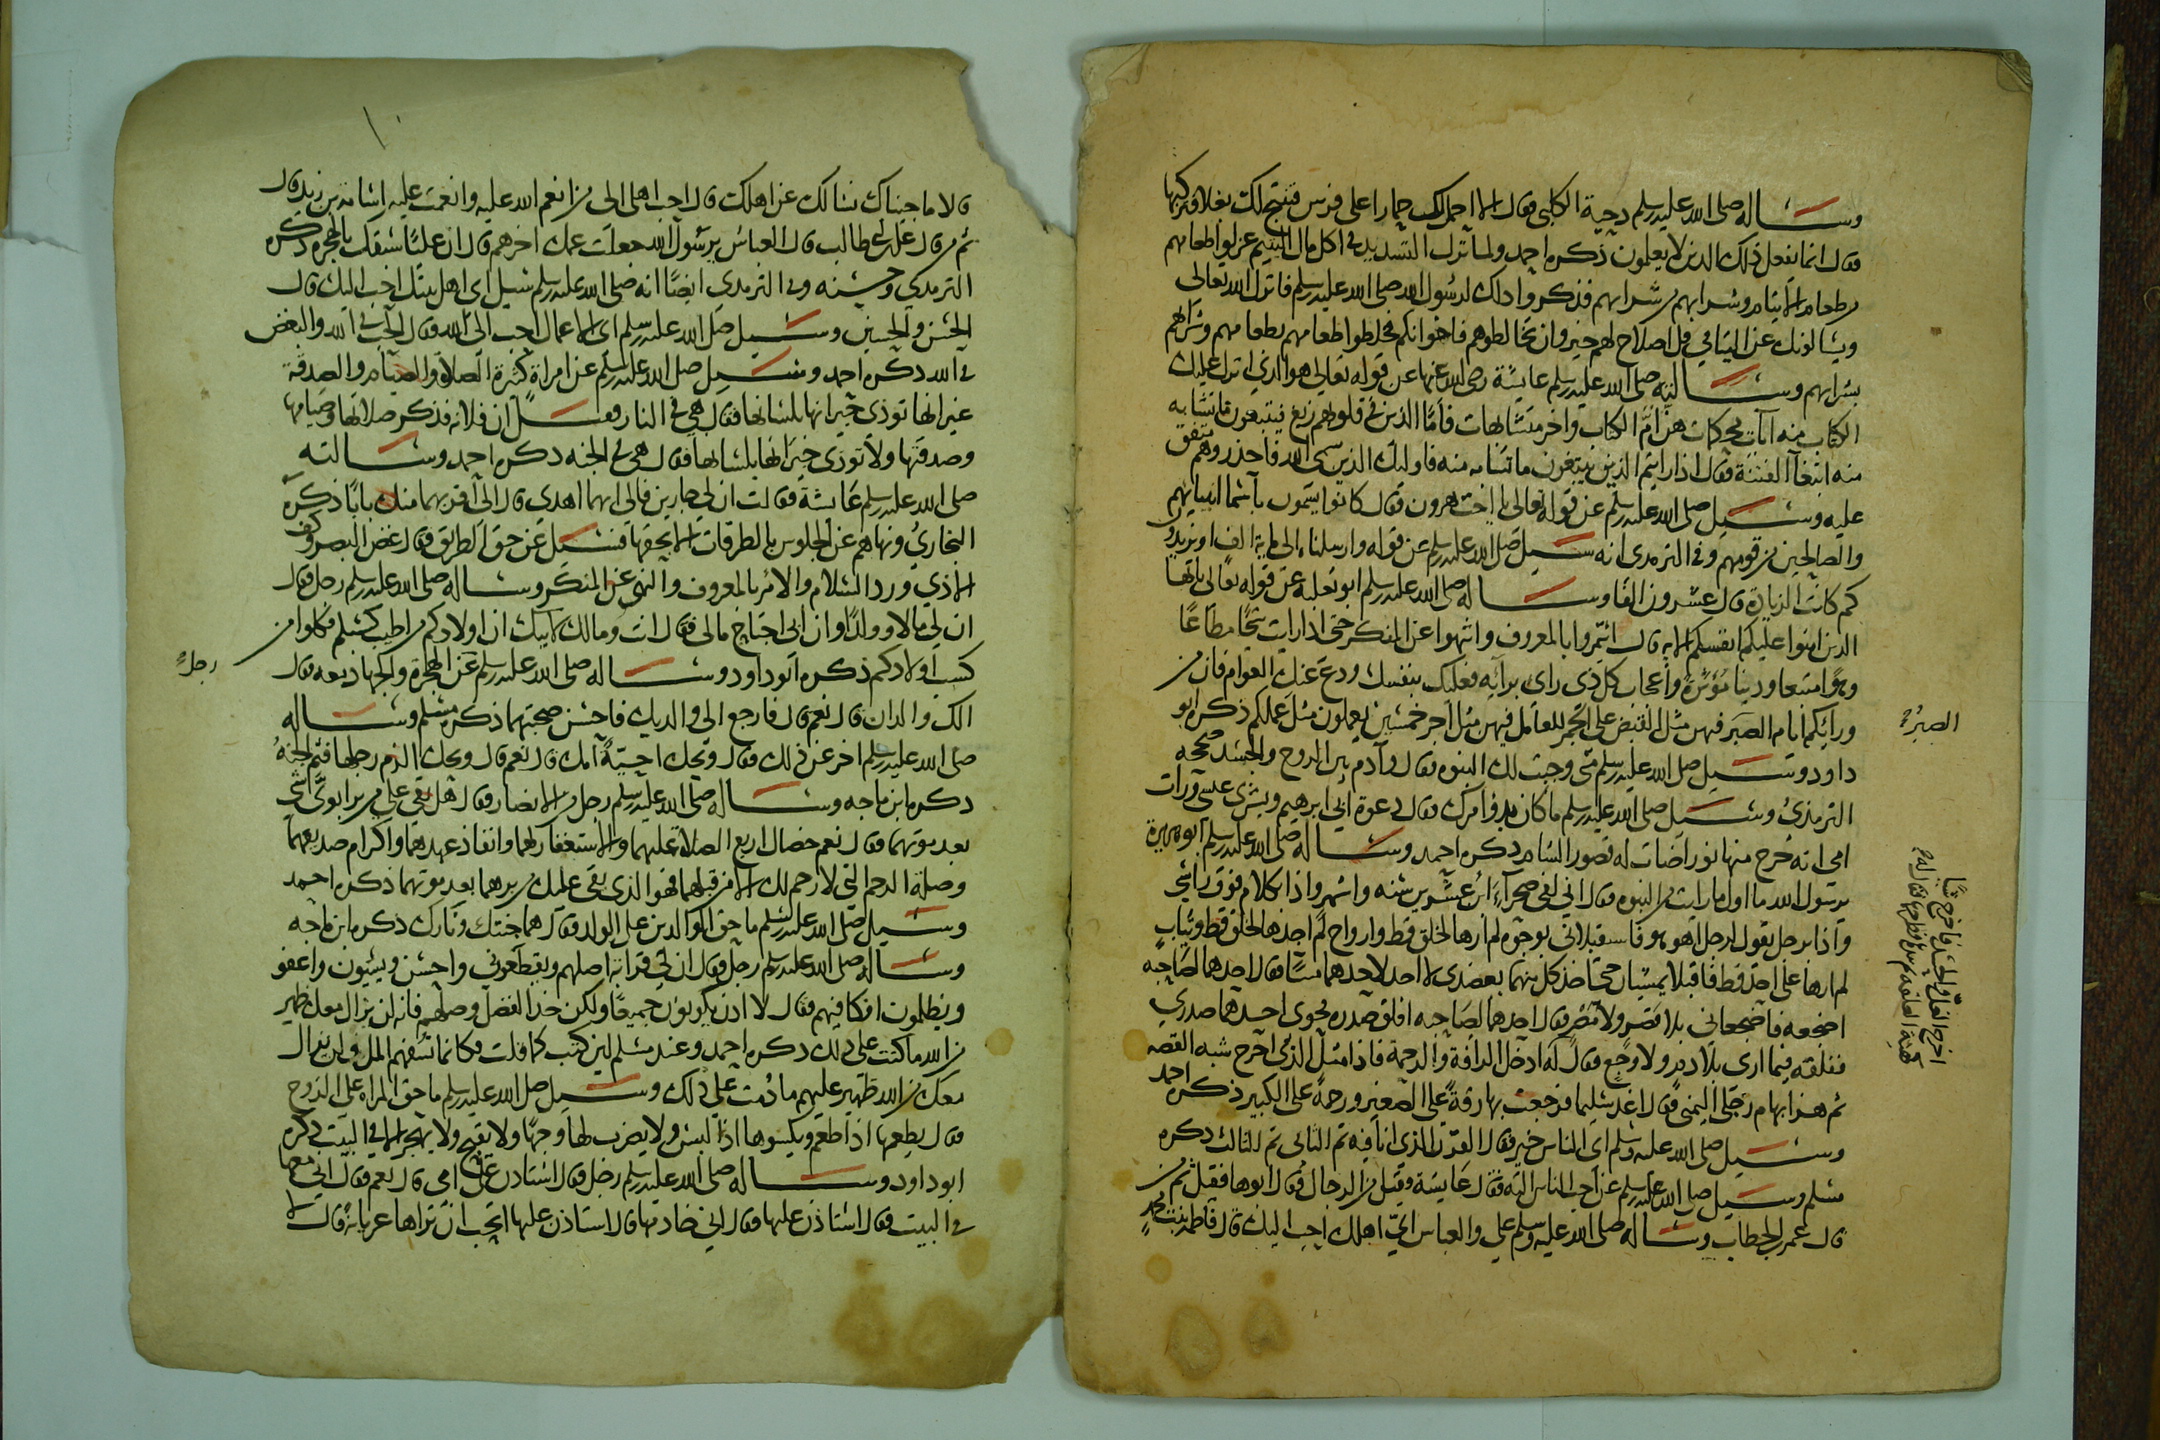 وساله صلى الله عليه وسلم دحية الكلبي فقال الا احمل لك حمارا على فرس فتنتج لك بغلا فتركبها
فقال انما يفعل ذلك الذين لا يعلمون ذكره احمد ولما نزل التشديد في اكل مال اليتيم عزلوا طعامهم
من طعام الايتام وشرابهم من شرابهم فذكروا ذلك لرسول الله صلى الله عليه وسلم فانزل الله تعالى
ويسالونك عن اليتامي قل اصلاح لهم خير وان تخالطوهم فاخوانكم فخلطوا طعامهم بطعامهم وشرابهم
بشرابهم وسالته صلى الله عليه وسلم عايشة رضي الله عنها عن قوله تعالى هو الذي انزل عليك
الكتاب منه آيات محكمات هن ام الكتاب واخر متشابهات فاما الذين في قلوبهم زيغ فيتبعون ما تشابه
منه ابتغآ الفتنة فقال اذا رايتم الذين يتبعون ما تشابه منه فاوليك الذين سمى الله فاحذروهم متفق
عليه وسيل صلى الله عليه وسلم عن قوله تعالى يا اخت هرون فقال كانوا يسمون باسما انبيايهم
والصالحين من قومهم وفي الترمذي انه سيل صلى الله عليه وسلم عن قوله وارسلناه الى ماية الف او يزيدون
كم كانت الزيادة قال عشرون الفا وساله صلى الله عليه وسلم ابو ثعلبه عن قوله تعالى يا ايها
الذين امنوا عليكم انفسكم الايه قال ائتمروا بالمعروف وانتهوا عن المنكر حتى اذا رايت شحا مطاعا
وهوا متبعا ودنيا موثرة واعجاب كل ذي راى برايه فعليك بنفسك ودع عنك العوام فان من
ورائكم ايام الصبر فيهن مثل القبض على الجمر للعامل فيهن مثل اجر خمسين يعملون مثل عملكم ذكره ابو
الصبر
داود وسيل صلى الله عليه وسلم متى وجبت لك النبوه فقال وآدم بين الروح والجسد صححه
الترمذي وسيل صلى الله عليه وسلم ما كان بدو امرك فقال دعوة ابي ابرهيم وبشرى عيسى ورات
امي انه خرج منها نور اضات له قصور الشام ذكره احمد وساله صلى الله عليه وسلم ابو هريرة
يرسول الله ما اول ما رايت من النبوه فقال اني لفي صحرآء ابن عشر سنه واشهر واذا بكلام فوق راسي
واذا برجل يقول لرجل اهو هو فاستقبلاني بوجوه لم ارها لخلق قط وارواح لم اجدها لخلق قط وثياب
لم ارها على احد قط فاقبلا يمشيان حتى اخذ كل منهما بعضدي لا اجد لاحدهما مسا فقال احدهما لصاحبه
اضجعه فاضجعاني بلا قصر ولا هصر فقال احدهما لصاحبه افلق صدره فحوى احدهما صدري
ففلقه فيما ارى بلا دم ولا وجع فقال له
اخرج الغل والحسد فاخرج شيا
كهية العلقه ثم نبذها فطرحها فقال له
ادخل الرافة والرحمة فاذا مثل الذي اخرج شبه الفضه
ثم هز ابهام رجلي اليمنى فقال اغد سليما فرجعت بها رقة على الصغير ورحمة على الكبير ذكره احمد
وسيل صلى الله عليه وسلم اي الناس خير فقال القرن الذي انا فيه ثم الثاني ثم الثالث ذكره
مسلم وسيل صلى الله عليه وسلم عن احب الناس اليه فقال عايشة فقيل من الرجال فقال ابوها فقيل ثم من
قال عمر بن الخطاب وساله صلى الله عليه وسلم علي والعباس اي اهلك احب اليك قال فاطمه بنت محمد
١٠
قالا ما جيناك نسالك عن اهلك قال احب اهلى الى من انعم الله عليه وانعمت عليه اسامة بن زيد قالا
ثم من قال علي بن ابي طالب قال العباس يرسول الله جعلت عمك اخرهم قال ان عليا سبقك بالهجره ذكره
الترمذي وحسنه وفي الترمذي ايضا انه صلى الله عليه وسلم سيل اي اهل بيتك احب اليك قال
الحسن والحسين وسيل صلى الله عليه وسلم اي الاعمال احب الى الله فقال الحب في الله والبغض
في الله ذكره احمد وسيل صلى الله عليه وسلم عن امراة كثرة الصلاة والصيام والصدقة
غير انها توذي جيرانها بلسانها فقال هي في النار فقيل ان فلانه فذكر صلاتها وصيامها
وصدقتها ولا توذي جيرانها بلسانها فقال هي في الجنه ذكره احمد وسالته
صلى الله عليه وسلم عايشة فقالت ان لي جارين فالى ايهما اهدي قال الى اقربهما منك بابا ذكره
البخاري ونهاهم عن الجلوس بالطرقات الا بحقها فسيل عن حق الطريق فقال غض البصر وكف
الاذي ورد السلام والامر بالمعروف والنهي عن المنكر وساله صلى الله عليه وسلم رجل فقال
ان لي مالا وولدا وان ابي اجتاح مالي فقال انت ومالك لابيك ان اولادكم من اطيب كسبكم فكلوا من
كسب اولادكم ذكره ابو داود وساله صلى الله عليه وسلم رجل عن الهجرة والجهاد معه فقال
الك والدان قال نعم قال فارجع الى والديك فاحسن صحبتهما ذكره مسلم وساله
صلى الله عليه وسلم اخر عن ذلك فقال ويحك احية امك قال نعم قال ويحك الزم رجلها فثم الجنه
ذكره ابن ماجه وساله صلى الله عليه وسلم رجل من الانصار فقال هل بقي علي من بر ابوي شي
بعد موتهما فقال نعم خصال اربع الصلاة عليهما والاستغفار لهما وانفاذ عهدهما واكرام صديقهما
وصلة الرحم التي لا رحم لك الا من قبلهما فهو الذي بقي عليك من برهما بعد موتهما ذكره احمد
وسيل صلى الله عليه وسلم ما حق الوالدين على الولد فقال هما جنتك ونارك ذكره ابن ماجه
وساله صلى الله عليه وسلم رجل فقال ان لي قرابة اصلهم ويقطعوني واحسن ويسيون واعفو
ويظلمون افاكافيهم فقال لا اذن يكونون جميعا ولكن خذ الفضل وصلهم فانه لن يزال معك ظهير
من الله ما كنت على ذلك ذكره احمد وعند مسلم لين كنت كما قلت فكانما تسفهم المل ولن يزال
معك من الله ظهير عليهم ما دمت على ذلك وسيل صلى الله عليه وسلم ما حق المراه على الزوج
قال يطعمها اذا طعم ويكسوها اذا لبس ولا يضرب لها وجها ولا يقبح ولا يهجر الا في البيت ذكره
ابو داود وساله صلى الله عليه وسلم رجل فقال استاذن على امي قال نعم فقال اني معها
في البيت فقال استاذن عليها فقال اني خادمها قال استاذن عليها اتحب ان تراها عريانة قال لا